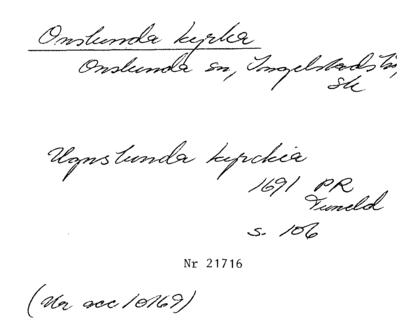 Onslunda kyrka
Onslunda sn, Ingelstads hd,
Sk
kyrckia
1691 PR
Tuneld
s. 106
Nr 21716
(Ur acc 10169)